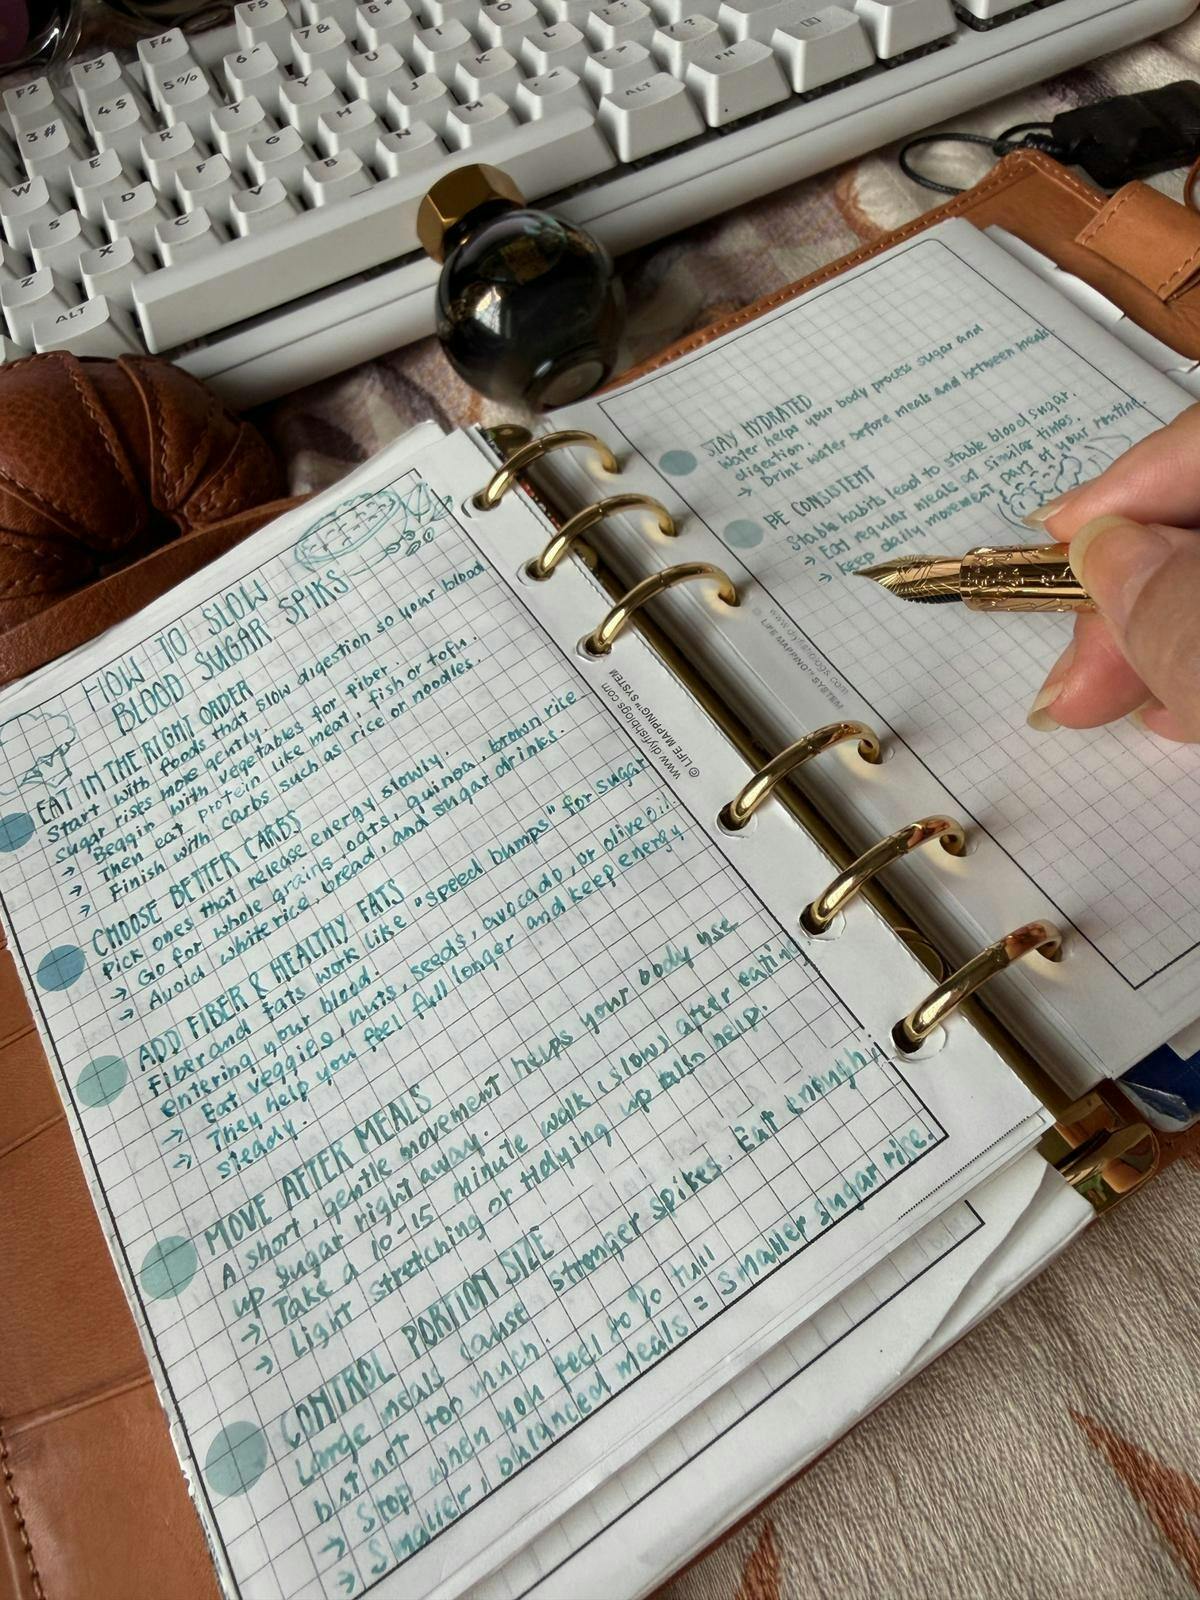 F2
F3
F4
F5
3#
4$
5%
6^
7&
8*
W
E
R
T
Y
U
I
O
S
D
F
G
H
J
K
L
Z
X
C
V
B
N
M
ALT
ALT
FN
HOW TO SLOW
BLOOD SUGAR SPIKS
EAT IN THE RIGHT ORDER
Start with foods that slow digestion so your blood
sugar rises more gently.
→ Beggin with vegetables for fiber.
→ Then eat protein like meat, fish or tofu.
→ Finish with carbs such as rice or noodles.
CHOOSE BETTER CARBS
Pick ones that release energy slowly.
→ Go for whole grains, oats, quinoa, brown rice
→ Avoid white rice, bread, and sugar drinks.
ADD FIBER & HEALTHY FATS
Fiber and fats work like "speed bumps" for sugar
entering your blood.
→ Eat veggies, nuts, seeds, avocado, or olive oil.
→ They help you feel full longer and keep energy
steady.
MOVE AFTER MEALS
A short, gentle movement helps your body use
up sugar right away.
→ Take a 10-15 minute walk (slow) after eating
→ Light stretching or tidying up also help.
CONTROL PORTION SIZE
Large meals cause stronger spikes. Eat enough,
but not too much.
→ Stop when you feel 80% full
→ Smaller, balanced meals = smaller sugar rise.
www.diyfishblogs.com
© LIFE MAPPING™ SYSTEM
STAY HYDRATED
Water helps your body process sugar and
digestion.
→ Drink water before meals and between meals.
BE CONSISTENT
Stable habits lead to stable blood sugar.
→ Eat regular meals at similar times.
→ Keep daily movement part of your routine.
© www.diyfishblogs.com
LIFE MAPPING™ SYSTEM